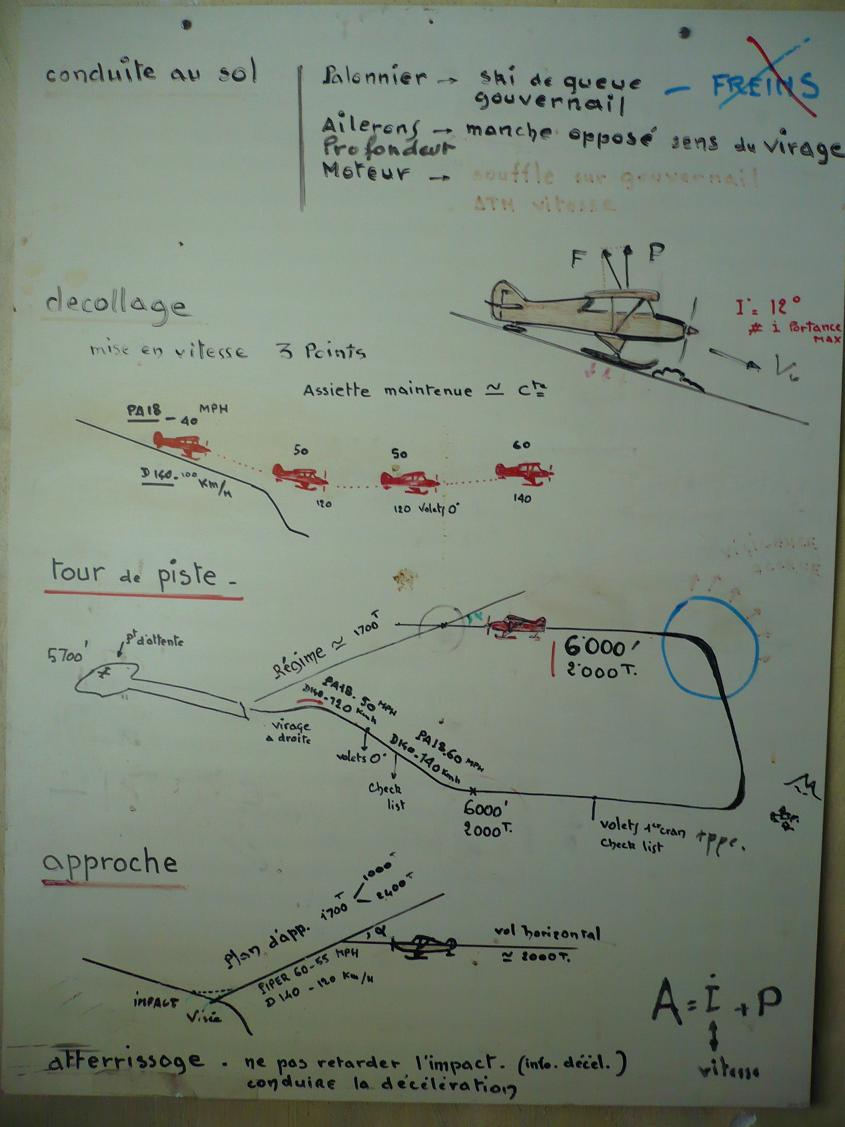 conduite au sol
Palonnier → ski de queue
gouvernail
– FREINS
Ailerons → manche opposé sens du virage
Profondeur
Moteur → souffle sur gouvernail
ATM vitesse
F P
decollage
I = 12°
# i Portance
MAX
mise en vitesse 3 Points
Assiette maintenue ≃ Cte
PA18 – 40 MPH
50
50
60
D140 – 100 Km/H
120
120 Volets 0°
140
tour de piste –
5700'
Pt d'attente
Régime ≃ 1700 T
6000'
2000 T.
PA18. 50 MPH
D140 – 120 Kmh
virage
a droite
volets 0°
PA18.60 MPH
D140 – 140 Kmh
Check
list
6000'
2000 T.
volets 1er cran
Check list
appr.
approche
Plan d'app. 1700 T
1000 T
2400 T
α
vol horizontal
≃ 2000 T.
PIPER 60-55 MPH
D 140 - 120 Km/H
IMPACT
Visée
A = i + P
vitesse
atterrissage – ne pas retarder l'impact. (info. décel.)
conduire la décélération